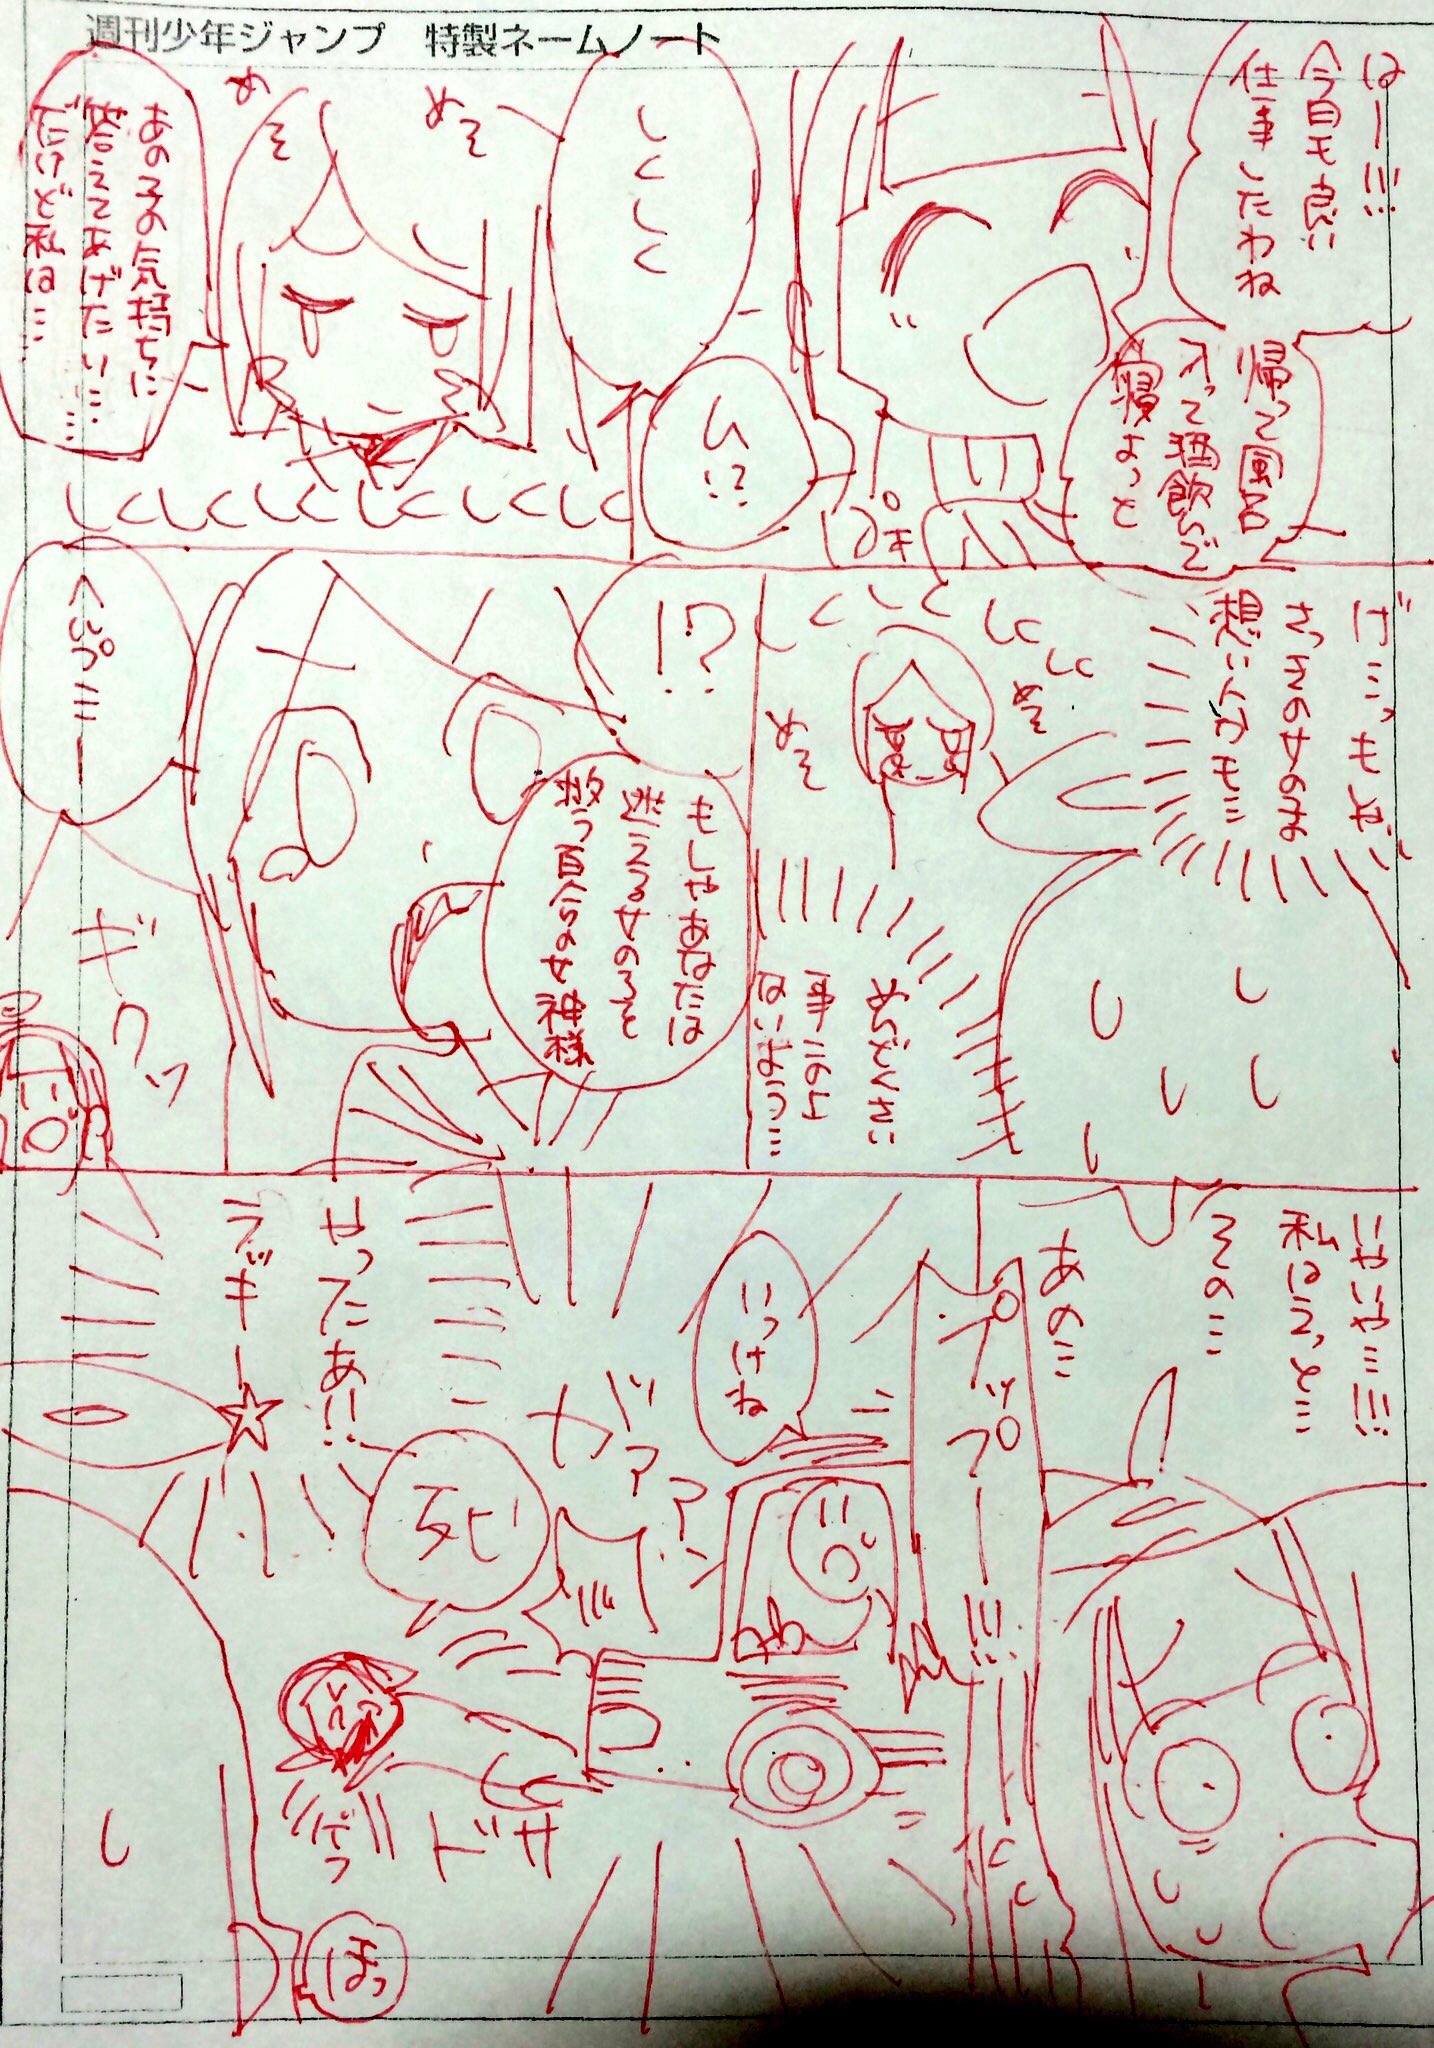 週刊少年ジャンプ 特製ネームノート
はー!!!
今日も良い
仕事したわね
帰って風呂
入って酒飲んで
寝よっと
しくしく
ん!?
めそ
めそ
あの子の気持ちに
答えてあげたい……
だけど私は……
しくしくしくしくしくしくしく
げ…っもしや
さっきの女の子の
想い人かも…
しくしくしくしく
めそ
めそ
めんどくさい
事にのよ
ないよう…
!?
もしやあなたは
迷える女の子を
救う百合の女神様
へぷ…ー
ギクッ
いやいや…!!!
私はえっと…
その…
あの…
プップー!!!
いっけね
ガァァァン
死ヒ
ドサ
やったあ!!
ラッキー☆
ほっ